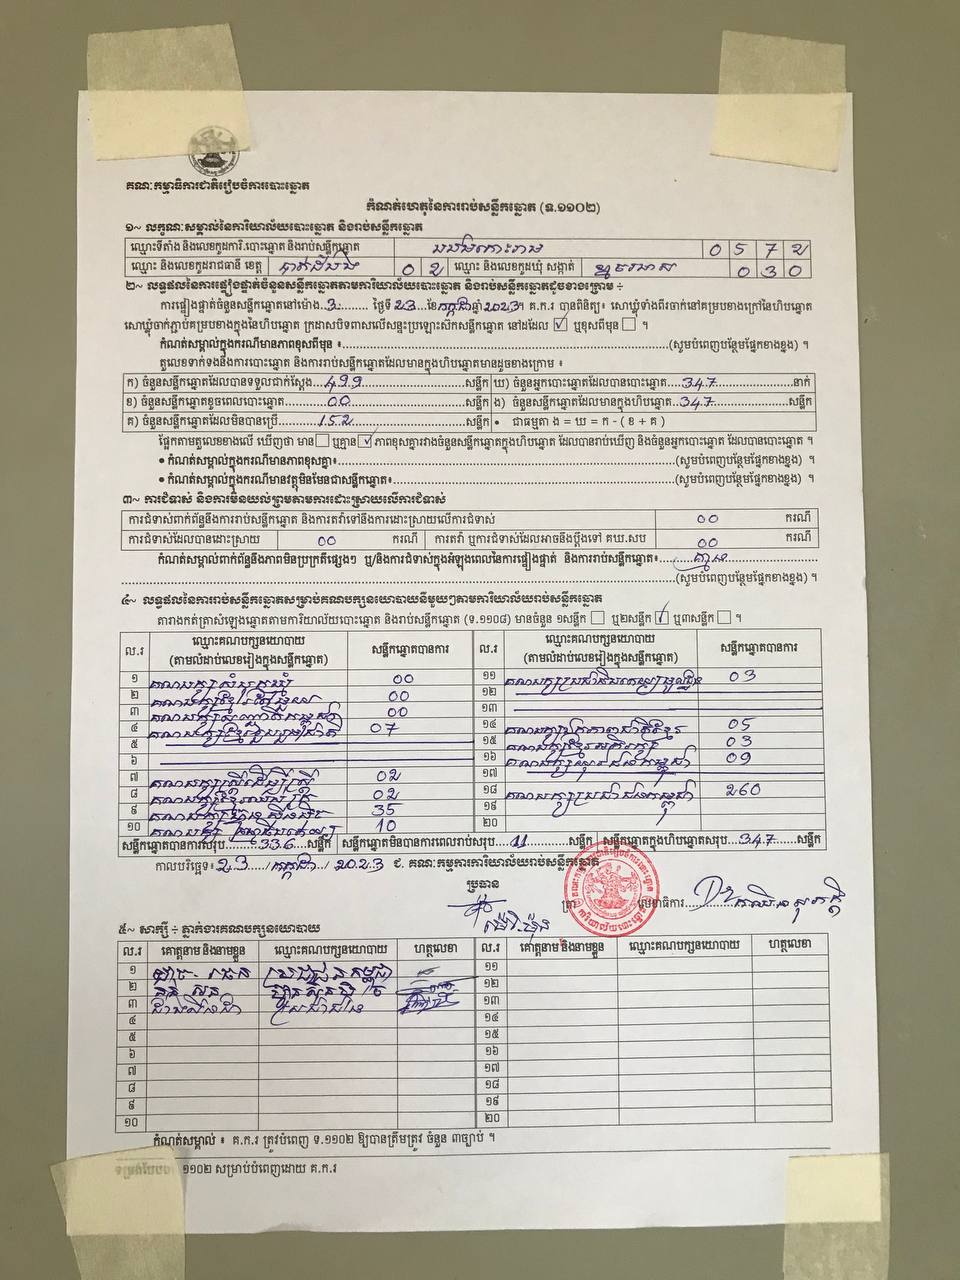 គណៈកម្មាធិការជាតិរៀបចំការបោះឆ្នោត
កំណត់ហេតុនៃការរាប់សន្លឹកឆ្នោត (ទ.១១០២)
១~ លក្ខណៈសម្គាល់នៃការិយាល័យបោះឆ្នោត និងរាប់សន្លឹកឆ្នោត
ឈ្មោះទីតាំង និងលេខកូដការិ.បោះឆ្នោត និងរាប់សន្លឹកឆ្នោត 0 5 7 2
ឈ្មោះ និងលេខកូដរាជធានី ខេត្ត បាត់ដំបង 0 2 ឈ្មោះ និងលេខកូដឃុំ សង្កាត់ 0 3 0
២~ លទ្ធផលនៃការផ្ទៀងផ្ទាត់ចំនួនសន្លឹកឆ្នោតតាមការិយាល័យបោះឆ្នោត និងរាប់សន្លឹកឆ្នោតដូចខាងក្រោម ÷
ការផ្ទៀងផ្ទាត់ចំនួនសន្លឹកឆ្នោតនៅម៉ោង..3........ ថ្ងៃទី 23 ខែ កក្កដា ឆ្នាំ 2023។ គ.ក.រ បានពិនិត្យ៖ សោឃ្លុំទាំងពីរចាក់នៅគម្របខាងក្រៅនៃហិបឆ្នោត
សោឃ្លុំចាក់ភ្ជាប់គម្របខាងក្នុងនៃហិបឆ្នោត ក្រដាសបិទពាសលើសន្ទះប្រឡោះស៊កសន្លឹកឆ្នោត នៅដដែល ☑ ឬខុសពីមុន ☐ ។
កំណត់សម្គាល់ក្នុងករណីមានភាពខុសពីមុន ៖..........(សូមបំពេញបន្ថែមផ្នែកខាងខ្នង) ។
តួលេខទាក់ទងនឹងការបោះឆ្នោត និងការរាប់សន្លឹកឆ្នោតដែលមានក្នុងហិបឆ្នោតមានដូចខាងក្រោម ៖
ក) ចំនួនសន្លឹកឆ្នោតដែលបានទទួលជាក់ស្តែង....499....សន្លឹក ឃ) ចំនួនអ្នកបោះឆ្នោតដែលបានបោះឆ្នោត....347....នាក់
ខ) ចំនួនសន្លឹកឆ្នោតខូចពេលបោះឆ្នោត....00....សន្លឹក ង) ចំនួនសន្លឹកឆ្នោតដែលមានក្នុងហិបឆ្នោត....347....សន្លឹក
គ) ចំនួនសន្លឹកឆ្នោតដែលមិនបានប្រើ....152....សន្លឹក • ជាធម្មតា ង = ឃ = ក - ( ខ + គ )
ផ្អែកតាមតួលេខខាងលើ ឃើញថា មាន ☐ ឬគ្មាន ☑ ភាពខុសគ្នារវាងចំនួនសន្លឹកឆ្នោតក្នុងហិបឆ្នោត ដែលបានរាប់ឃើញ និងចំនួនអ្នកបោះឆ្នោត ដែលបានបោះឆ្នោត ។
• កំណត់សម្គាល់ក្នុងករណីមានភាពខុសគ្នា៖..........(សូមបំពេញបន្ថែមផ្នែកខាងខ្នង) ។
• កំណត់សម្គាល់ក្នុងករណីមានវត្ថុមិនមែនជាសន្លឹកឆ្នោត៖..........(សូមបំពេញបន្ថែមផ្នែកខាងខ្នង) ។
៣~ ការជំទាស់ និងការមិនយល់ព្រមតាមការដោះស្រាយលើការជំទាស់
ការជំទាស់ពាក់ព័ន្ធនឹងការរាប់សន្លឹកឆ្នោត និងការតវ៉ាទៅនឹងការដោះស្រាយលើការជំទាស់ 00 ករណី
ការជំទាស់ដែលបានដោះស្រាយ 00 ករណី ការតវ៉ា ឬការជំទាស់ដែលអាចនឹងប្តឹងទៅ គឃ.សប 00 ករណី
កំណត់សម្គាល់ពាក់ព័ន្ធនឹងភាពមិនប្រក្រតីផ្សេងៗ ឬ/និងការជំទាស់ក្នុងអំឡុងពេលនៃការផ្ទៀងផ្ទាត់ និងការរាប់សន្លឹកឆ្នោត៖....គ្មាន....
..........(សូមបំពេញបន្ថែមផ្នែកខាងខ្នង) ។
៤~ លទ្ធផលនៃការរាប់សន្លឹកឆ្នោតសម្រាប់គណបក្សនយោបាយនីមួយៗតាមការិយាល័យរាប់សន្លឹកឆ្នោត
តារាងកត់ត្រាសំឡេងឆ្នោតតាមការិយាល័យបោះឆ្នោត និងរាប់សន្លឹកឆ្នោត (ទ.១១០៨) មានចំនួន ១សន្លឹក ☐ ឬ២សន្លឹក ☑ ឬ៣សន្លឹក ☐ ។
ល.រ ឈ្មោះគណបក្សនយោបាយ (តាមលំដាប់លេខរៀងក្នុងសន្លឹកឆ្នោត) សន្លឹកឆ្នោតបានការ ល.រ ឈ្មោះគណបក្សនយោបាយ (តាមលំដាប់លេខរៀងក្នុងសន្លឹកឆ្នោត) សន្លឹកឆ្នោតបានការ
១ 00 ១១ 03
២ 00 ១២
៣ 00 ១៣
៤ 07 ១៤ 05
៥ ១៥ 03
៦ ១៦ 09
៧ គណបក្សស្ត្រីដើម្បីស្ត្រី 02 ១៧
៨ 02 ១៨ គណបក្សប្រជាជនកម្ពុជា 260
៩ 35 ១៩
១០ 10 ២០
សន្លឹកឆ្នោតបានការសរុប..336..សន្លឹក សន្លឹកឆ្នោតមិនបានការពេលរាប់សរុប..11..សន្លឹក សន្លឹកឆ្នោតក្នុងហិបឆ្នោតសរុប..347..សន្លឹក
កាលបរិច្ឆេទ៖ 23 / កក្កដា / 2023 ជ. គណៈកម្មការការិយាល័យរាប់សន្លឹកឆ្នោត
ប្រធាន
ត្រា លេខាធិការ
៥~ សាក្សី ÷ ភ្នាក់ងារគណបក្សនយោបាយ
ល.រ គោត្តនាម និងនាមខ្លួន ឈ្មោះគណបក្សនយោបាយ ហត្ថលេខា ល.រ គោត្តនាម និងនាមខ្លួន ឈ្មោះគណបក្សនយោបាយ ហត្ថលេខា
១ ប្រជាជនកម្ពុជា ១១
២ ១២
៣ ១៣
៤ ១៤
៥ ១៥
៦ ១៦
៧ ១៧
៨ ១៨
៩ ១៩
១០ ២០
កំណត់សម្គាល់ ៖ គ.ក.រ ត្រូវបំពេញ ទ.១១០២ ឱ្យបានត្រឹមត្រូវ ចំនួន ៣ច្បាប់ ។
១១០២ សម្រាប់បំពេញដោយ គ.ក.រ